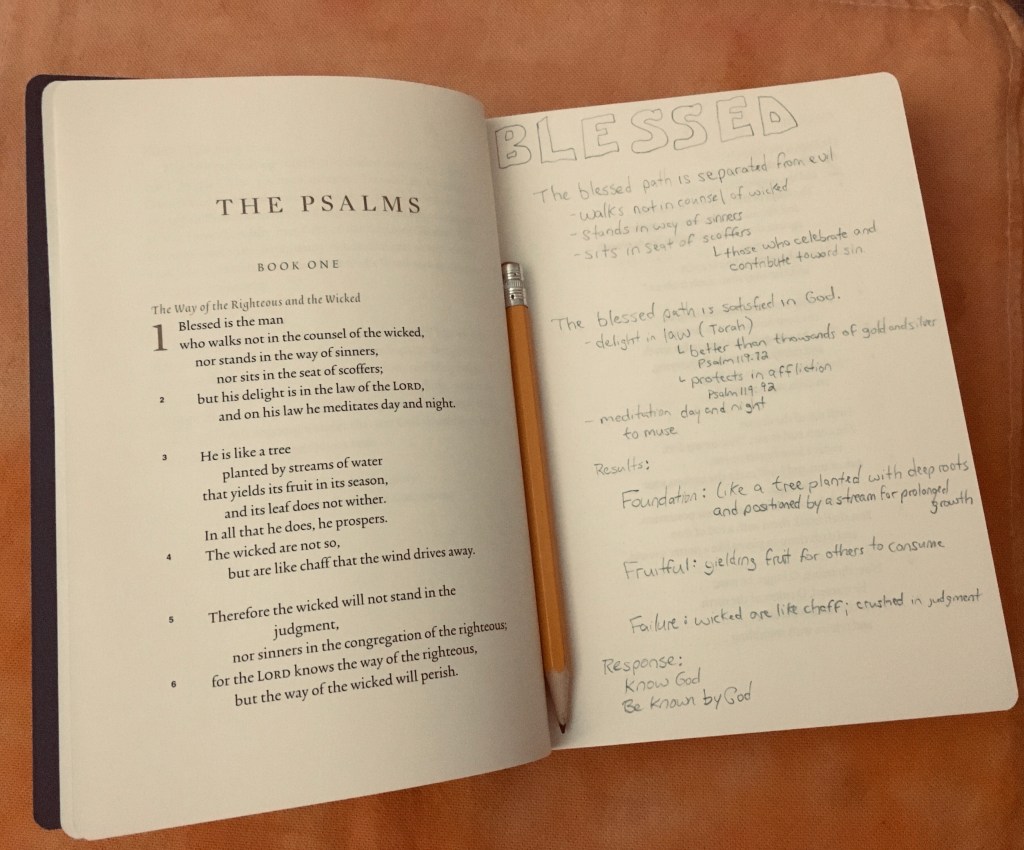 THE PSALMS
BOOK ONE
The Way of the Righteous and the Wicked
1 Blessed is the man
who walks not in the counsel of the wicked,
nor stands in the way of sinners,
nor sits in the seat of scoffers;
2 but his delight is in the law of the LORD,
and on his law he meditates day and night.
3 He is like a tree
planted by streams of water
that yields its fruit in its season,
and its leaf does not wither.
In all that he does, he prospers.
4 The wicked are not so,
but are like chaff that the wind drives away.
5 Therefore the wicked will not stand in the
judgment,
nor sinners in the congregation of the righteous;
6 for the LORD knows the way of the righteous,
but the way of the wicked will perish.
BLESSED
The blessed path is separated from evil
- walks not in counsel of wicked
- stands in way of sinners
- sits in seat of scoffers
└ those who celebrate and
contribute toward sin.
The blessed path is satisfied in God.
- delight in law (Torah)
└ better than thousands of gold and silver
Psalm 119:72
└ protects in affliction
Psalm 119:92
- meditation day and night
to muse
Results:
Foundation: like a tree planted with deep roots
and positioned by a stream for prolonged
growth
Fruitful: yielding fruit for others to consume
Failure: wicked are like chaff; crushed in judgment
Response:
Know God
Be known by God